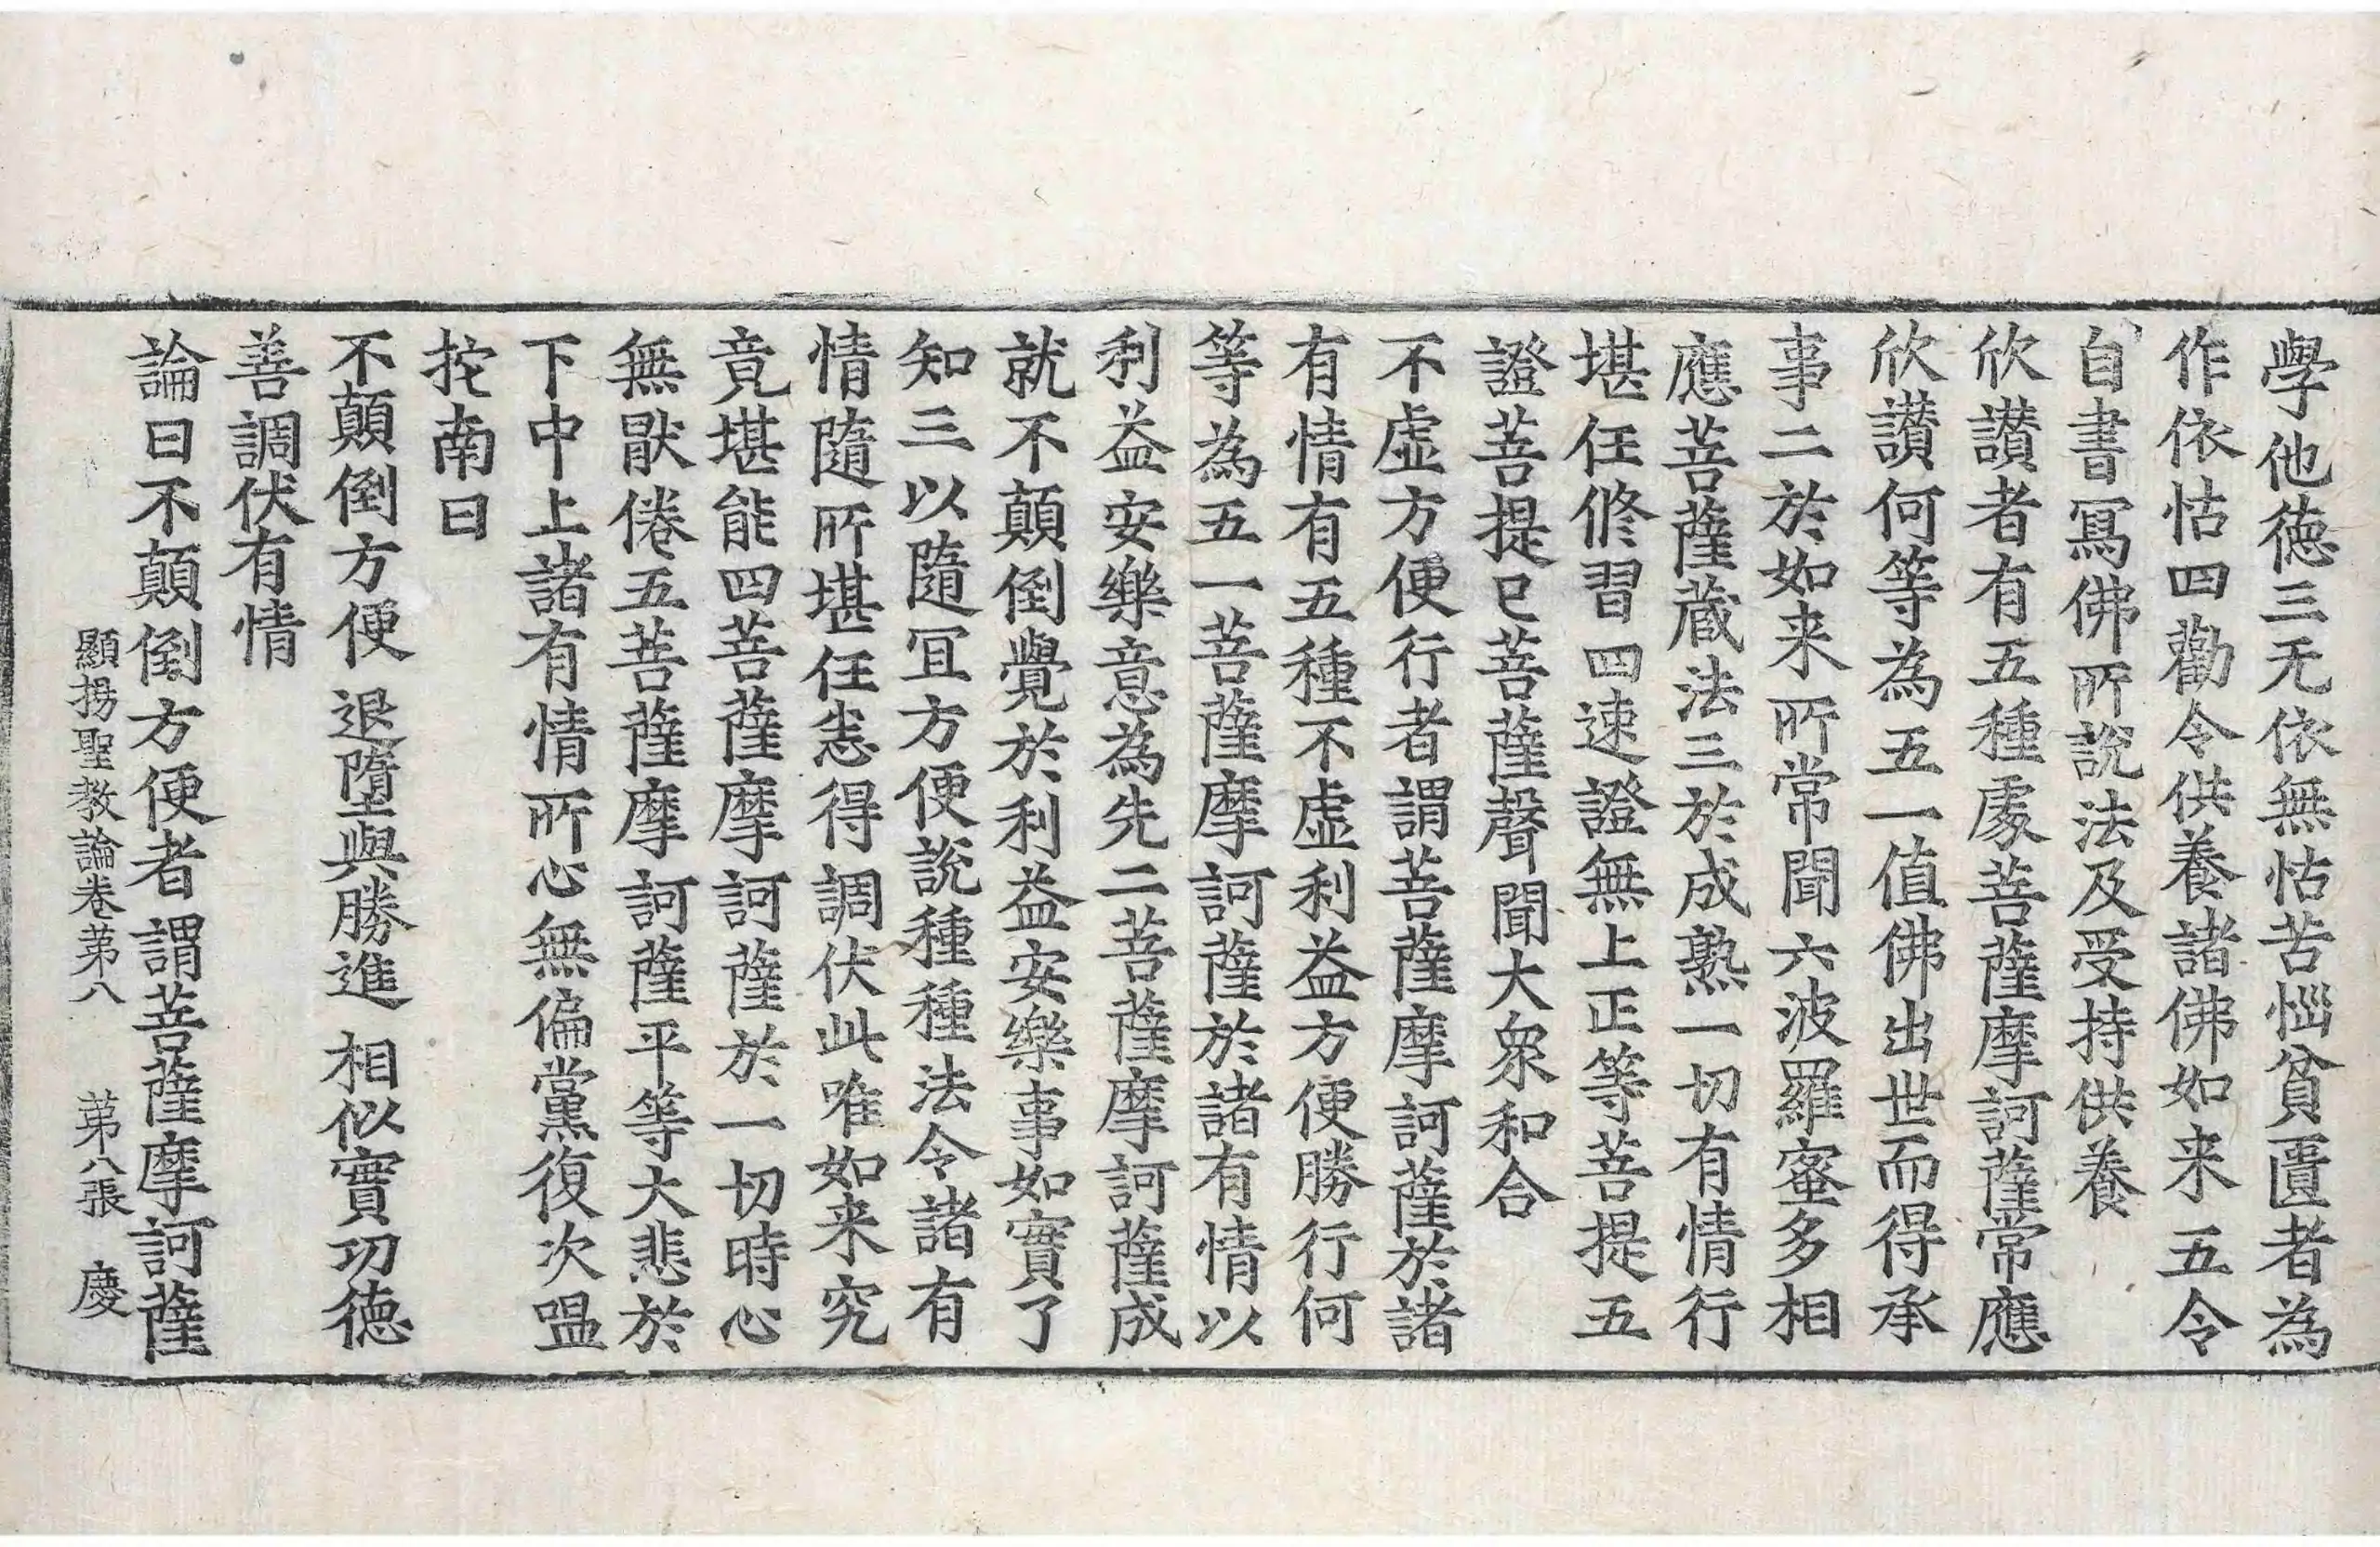 學他德三无依無怙苦惱貧匱者為
作依怙四勸令供養諸佛如来五令
自書寫佛所說法及受持供養
欣讚者有五種處菩薩摩訶薩常應
欣讚何等為五一值佛出世而得承
事二於如来所常聞六波羅蜜多相
應菩薩蔵法三於成熟一切有情行
堪任修習四速證無上正等菩提五
證菩提已菩薩聲聞大衆和合
不虛方便行者謂菩薩摩訶薩於諸
有情有五種不虛利益方便勝行何
等為五一菩薩摩訶薩於諸有情以
利益安樂意為先二菩薩摩訶薩成
就不顛倒覺於利益安樂事如實了
知三以隨冝方便說種種法令諸有
情隨所堪任恙得調伏此唯如来究
竟堪能四菩薩摩訶薩於一切時心
無猒倦五菩薩摩訶薩平等大悲於
下中上諸有情所心無偏黨復次嗢
拕南曰
不顛倒方便 退墮與勝進 相似實功德
善調伏有情
論曰不顛倒方便者謂菩薩摩訶薩
顯揚聖教論卷苐八 苐八張 慶